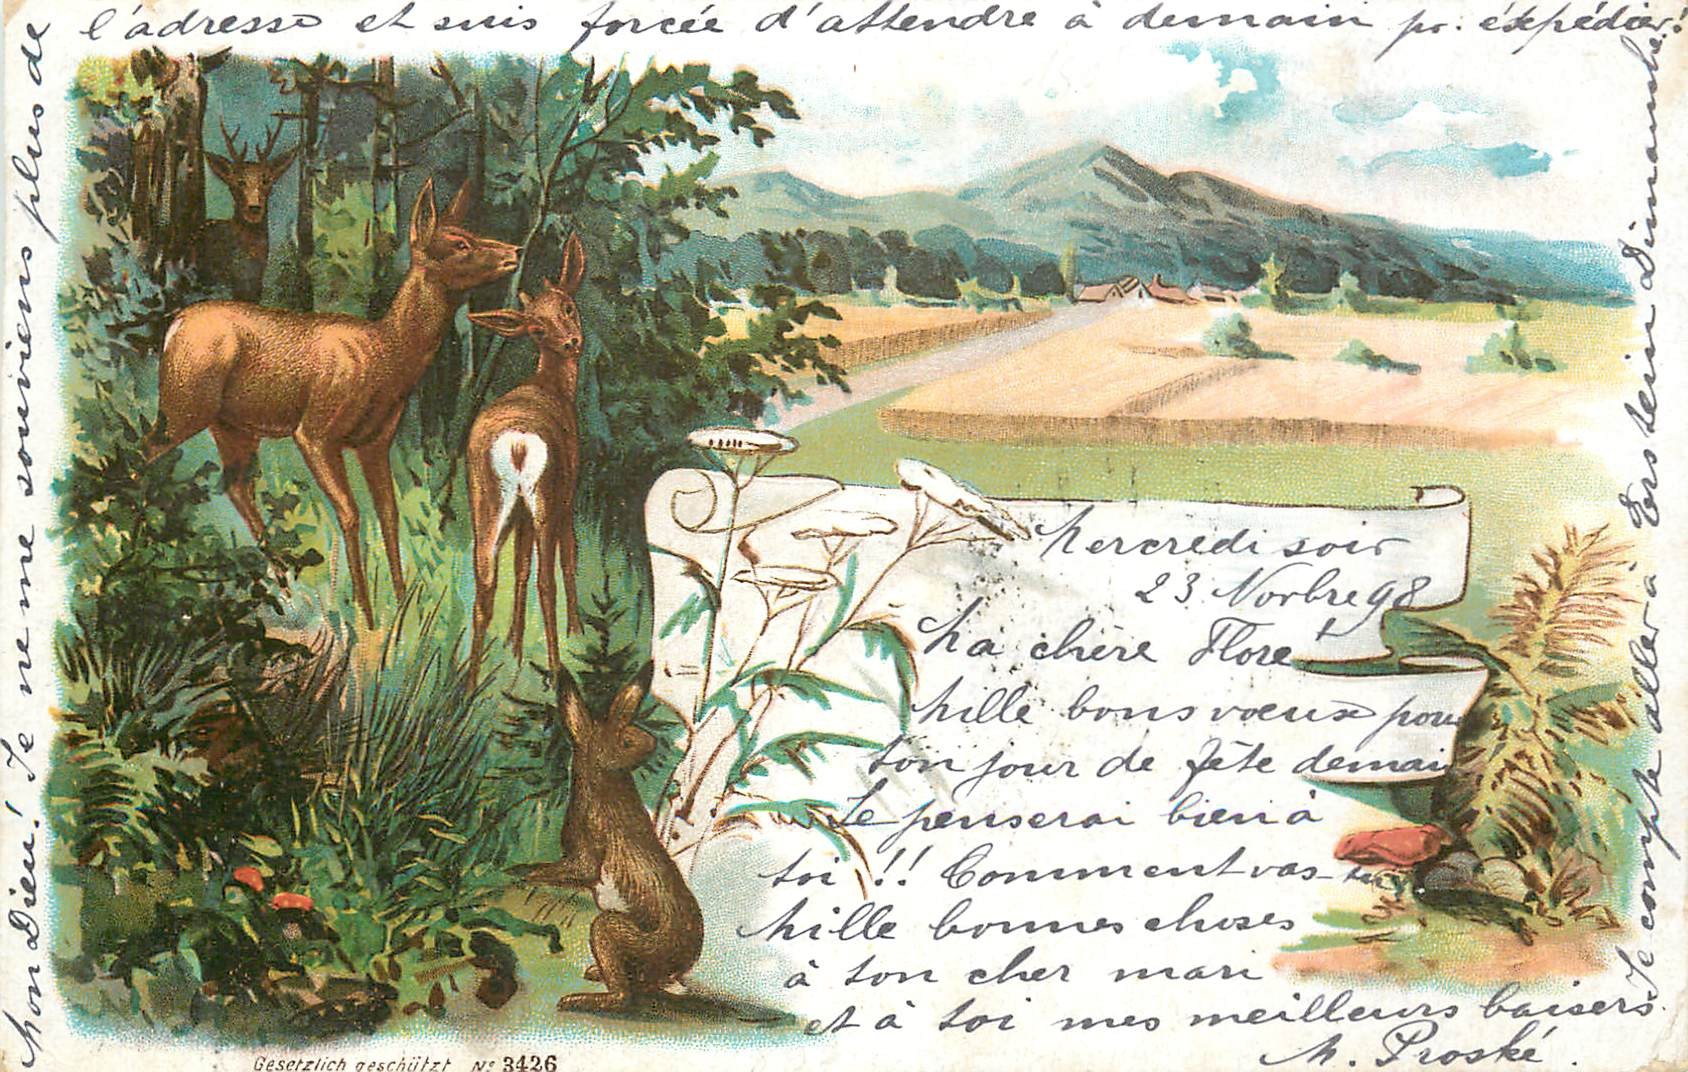 Mercredi soir
23 Novbre 98
Ma chère Flore
Mille bons voeux pour
ton jour de fête demain
Je penserai bien à
toi !! Comment vas-tu?
Mille bonnes choses
à ton cher mari
et à toi mes meilleurs baisers.
M. Proské.
Je compte aller à Erstein Dimanche.
Mon Dieu! Je ne me souviens plus de
l'adresse et suis forcée d'attendre à demain pr. éxpédier!
Gesetzlich geschützt No 3426